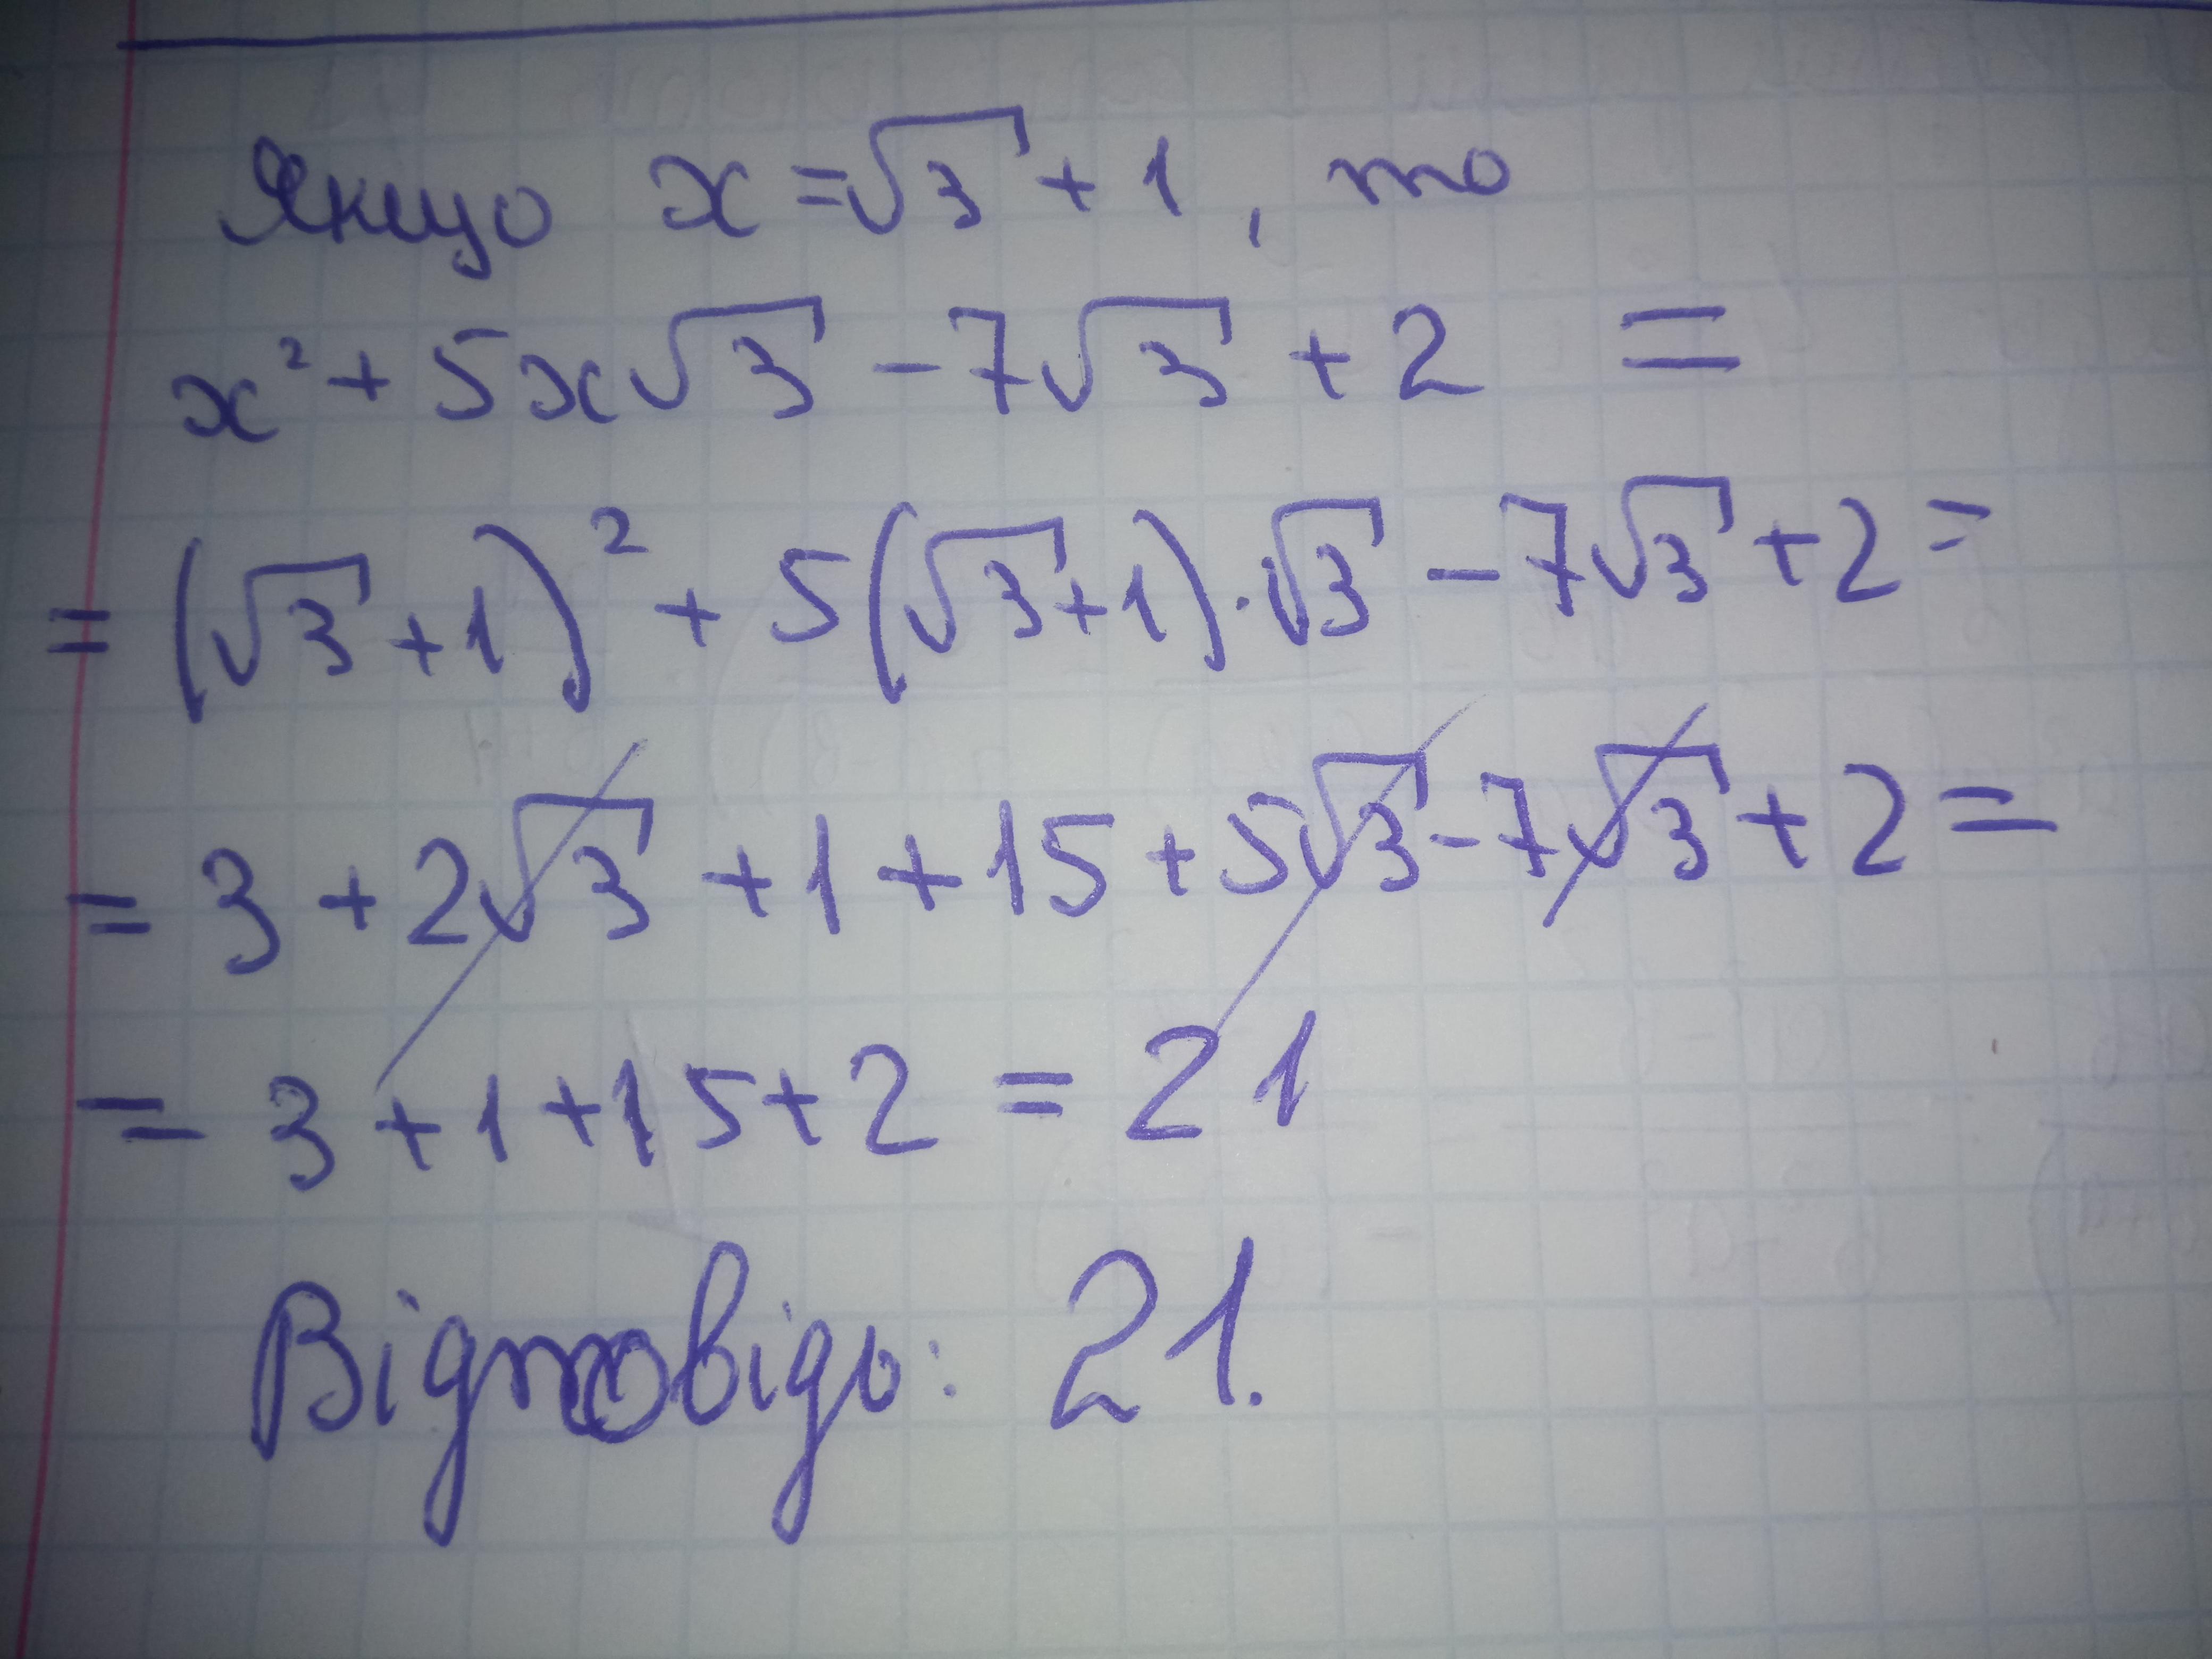 Якщо x = √3 + 1, то
x² + 5x√3 - 7√3 + 2 =
= (√3 + 1)² + 5(√3 + 1)·√3 - 7√3 + 2 =
= 3 + 2√3 + 1 + 15 + 5√3 - 7√3 + 2 =
= 3 + 1 + 15 + 2 = 21
Відповідь: 21.